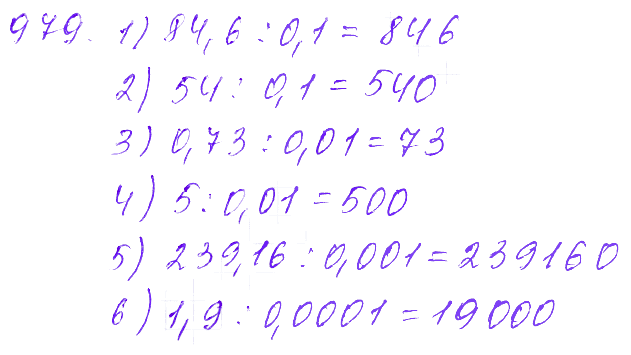 979. 1) 84,6 : 0,1 = 846
2) 54 : 0,1 = 540
3) 0,73 : 0,01 = 73
4) 5 : 0,01 = 500
5) 239,16 : 0,001 = 239160
6) 1,9 : 0,0001 = 19000